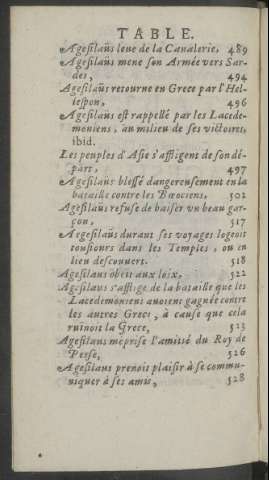 TABLE.
Agesilaüs leue de la Caualerie, 489
Agesilaüs mene son Armée vers Sar-
des, 494
Agesilaüs retourne en Grece par l'Hel-
lespon, 496
Agesilaüs est rappellé par les Lacede-
moniens, au milieu de ses victoires,
ibid.
Les peuples d'Asie s'affligent de son dé-
part, 497
Agesilaüs blessé dangereusement en la
bataille contre les Bœociens, 502
Agesilaüs refuse de baiser vn beau gar-
çon, 517
Aegesilaüs durant ses voyages logeoit
tousiours dans les Temples, ou en
lieu descouuert. 518
Agesilaus obeït aux loix, 522
Agesilaus s'afflige de la bataille que les
Lacedemoniens auoient gagnée contre
les autres Grecs, à cause que cela
ruinoit la Grece, 523
Agesilaus méprise l'amitié du Roy de
Perse, 526
Agesilaus prenoit plaisir à se commu-
niquer à ses amis, 528